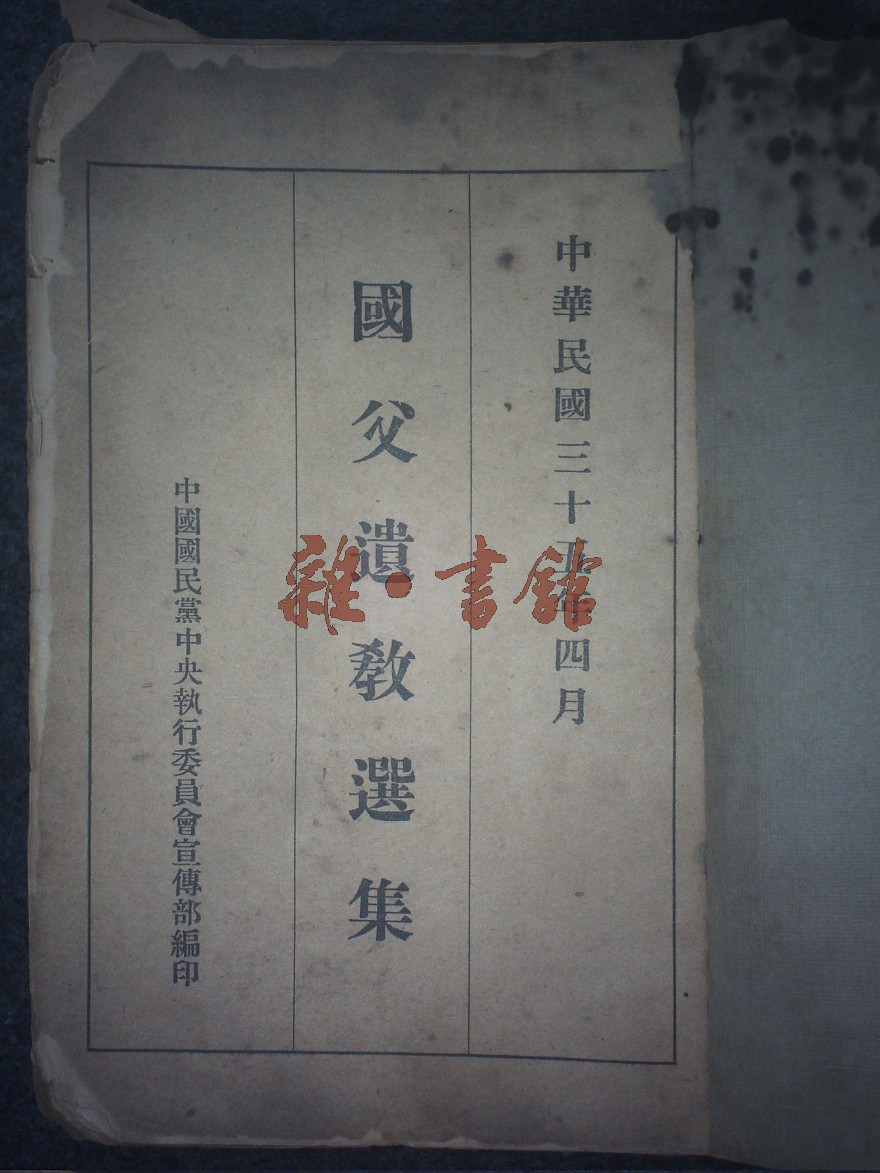 中華民國三十五年四月
國父遺教選集
中國國民黨中央執行委員會宣傳部編印
雜·書館